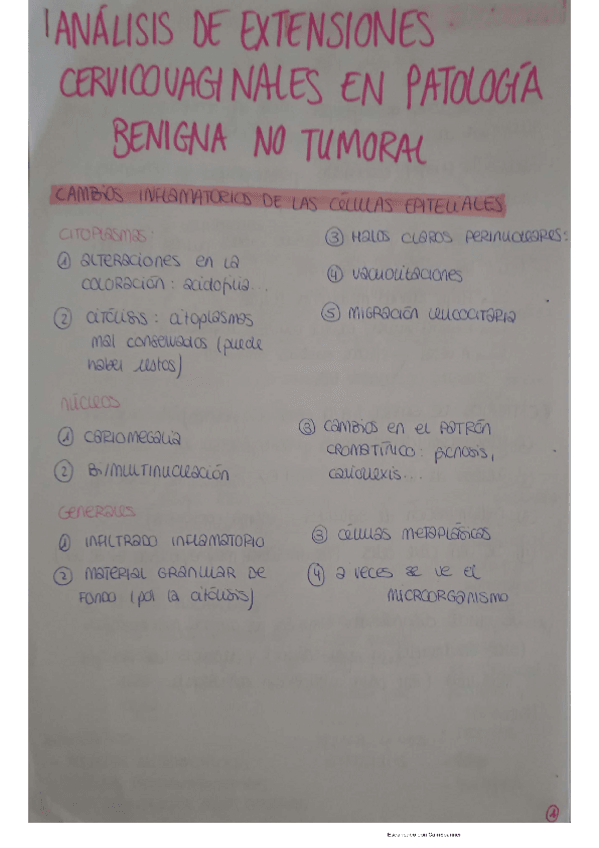 ANÁLISIS DE EXTENSIONES
CERVICOVAGINALES EN PATOLOGÍA
BENIGNA NO TUMORAL
CAMBIOS INFLAMATORIOS DE LAS CÉLULAS EPITELIALES
CITOPLASMAS:
① ALTERACIONES EN LA
COLORACIÓN: acidofilia...
② CITÓLISIS: citoplasmas
mal conservados (puede
haber restos)
③ HALOS CLAROS PERINUCLEARES:
④ VACUOLITACIONES
⑤ MIGRACIÓN LEUCOCITARIA
NÚCLEOS
① CARIOMEGALIA
② BI/MULTINUCLEACIÓN
③ CAMBIOS EN EL PATRÓN
CROMATÍNICO: picnosis,
cariorrexis...
GENERALES
① INFILTRADO INFLAMATORIO
② MATERIAL GRANULAR DE
FONDO (por la citólisis)
③ CÉLULAS METAPLÁSICAS
④ A veces se ve el
MICROORGANISMO
1
Escaneado con CamScanner